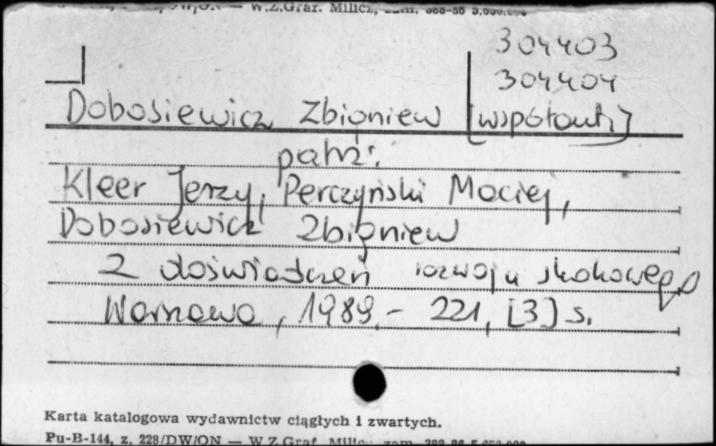 W.Z.Graf. Milicz, zam.
304403
304404
Dobosiewicz Zbigniew [współaut.]
patrz:
Kleer Jerzy, Perczyński Maciej,
Dobosiewicz Zbigniew
Z doświadczeń rozwoju skokowego
Warszawa, 1989.- 221, [3] s.
Karta katalogowa wydawnictw ciągłych i zwartych.
Pu-B-144, z. 228/DW/ON — W.Z.Graf. Milicz, zam.